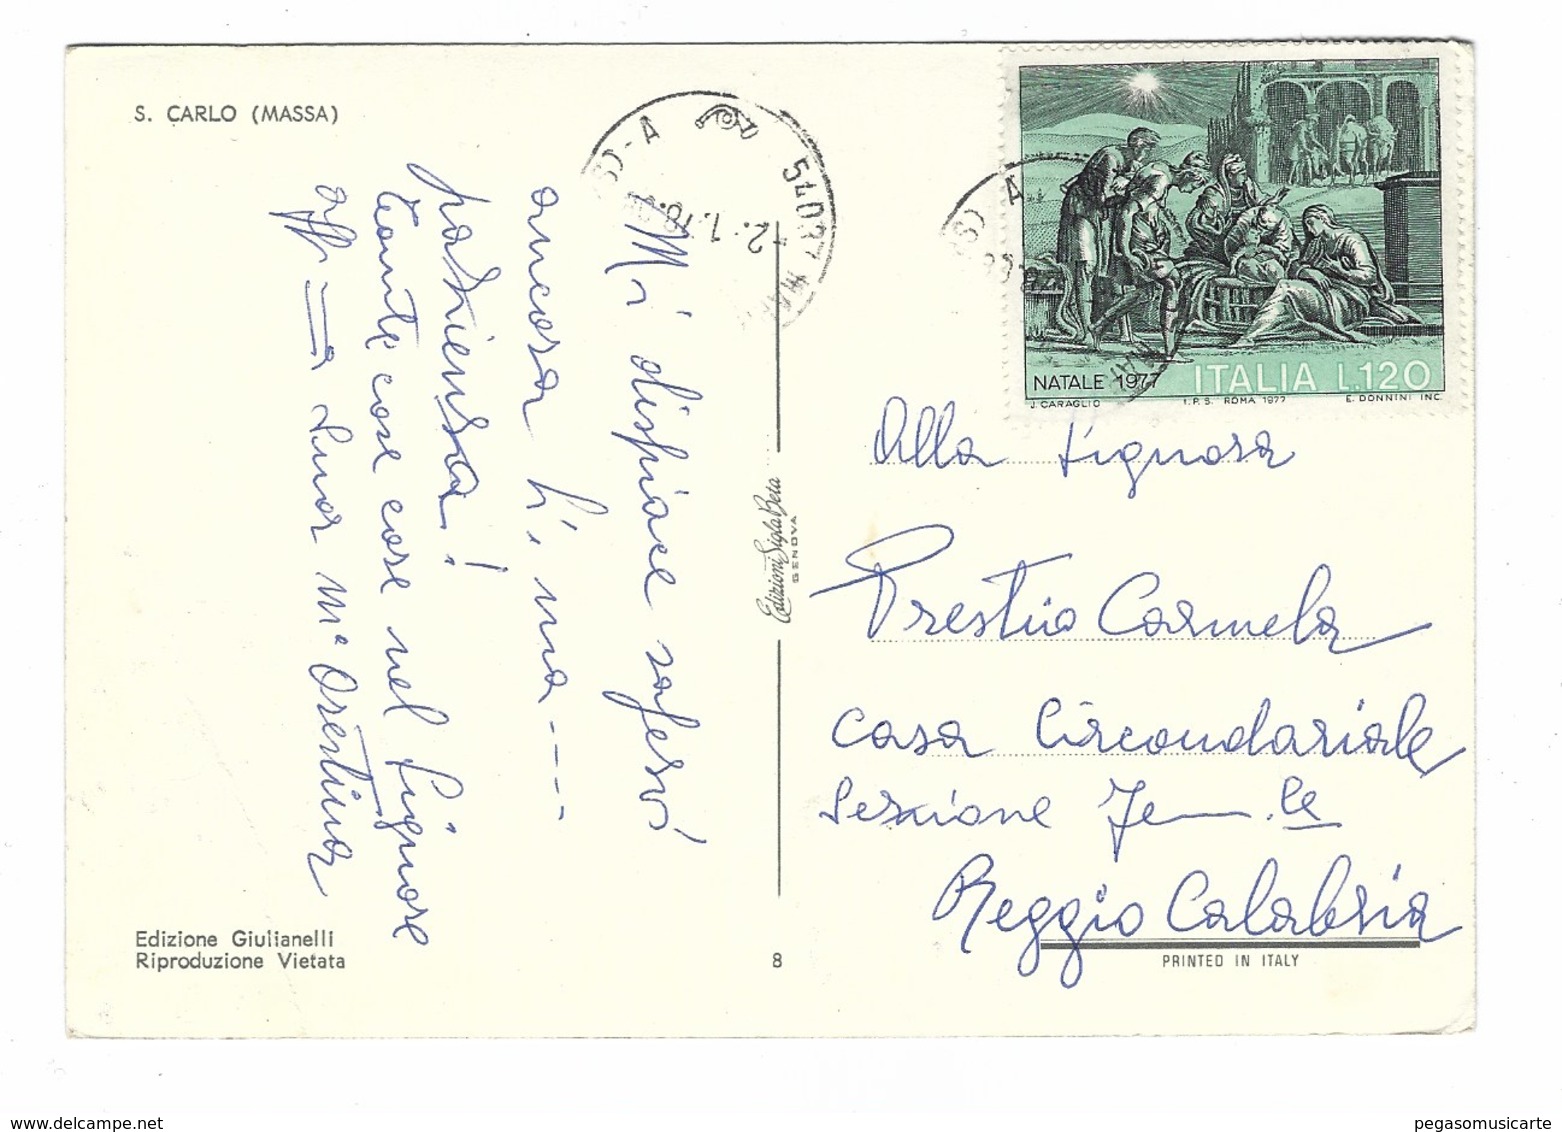 S. CARLO (MASSA)
Mi dispiace saperVi
ancora lì, ma ----
pazienza!
Tante cose care nel Signore
aff
Suor Mª Orestina
Edizione Giulianelli
Riproduzione Vietata
Edizioni Sigla Beta
GENOVA
8
54037 MA
-2.-1.78
NATALE 1977 ITALIA L.120
J. CARAGLIO I.P.S. ROMA 1977 E. DONNINI INC.
Alla Signora
Prestia Carmela
Casa Circondariale
Sezione Fem.le
Reggio Calabria
PRINTED IN ITALY
pegasomusicarte